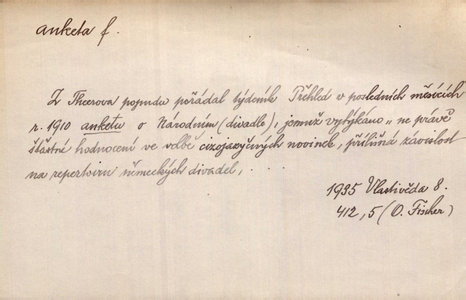 anketa f.
Z Theerova popudu pořádal týdeník Přehled v posledních měsících
r. 1910 anketu o Národním (divadle), jemuž vytýkáno „ne právě
šťastné hodnocení ve volbě cizojazyčných novinek, přílišná závislost
na repertoiru německých divadel,
1935 Vlastivěda 8.
412, 5 (O. Fischer)